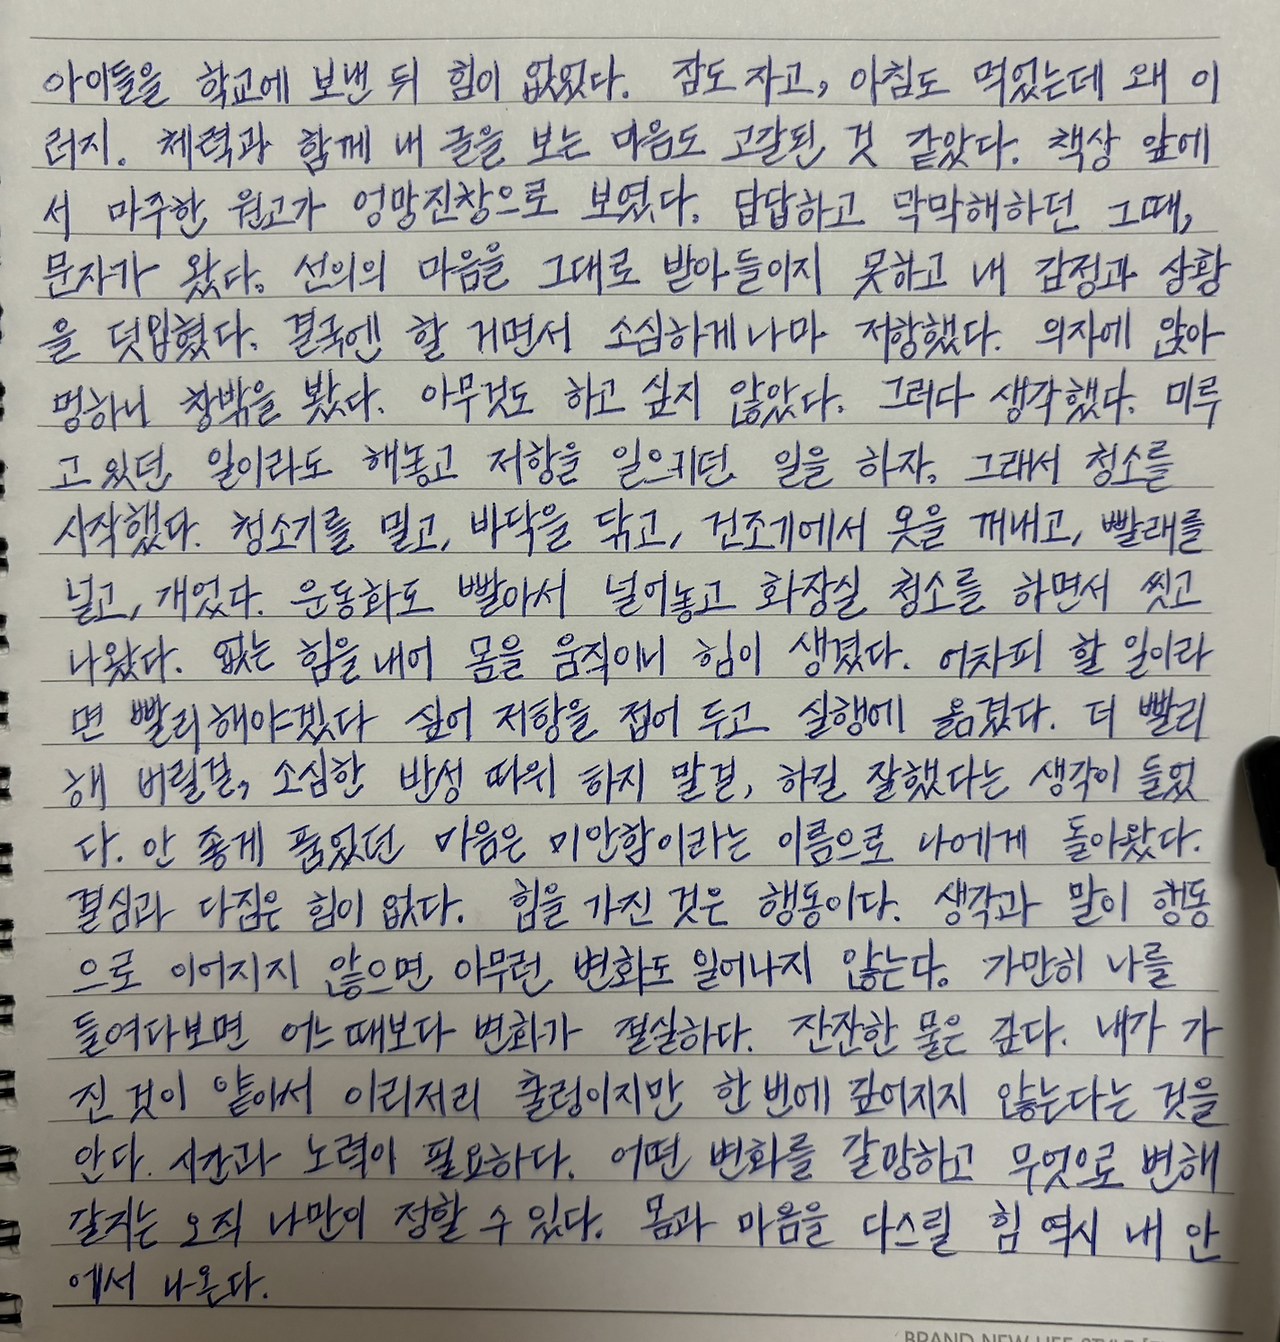 아이들을 학교에 보낸 뒤 힘이 없었다. 잠도 자고, 아침도 먹었는데 왜 이
러지. 체력과 함께 내 글을 보는 마음도 고갈된 것 같았다. 책상 앞에
서 마주한 원고가 엉망진창으로 보였다. 답답하고 막막해하던 그때,
문자가 왔다. 선의의 마음을 그대로 받아들이지 못하고 내 감정과 상황
을 덧입혔다. 결국엔 할 거면서 소심하게나마 저항했다. 의자에 앉아
멍하니 창밖을 봤다. 아무것도 하고 싶지 않았다. 그러다 생각했다. 미루
고 있던 일이라도 해놓고 저항을 일으키던 일을 하자, 그래서 청소를
시작했다. 청소기를 밀고, 바닥을 닦고, 건조기에서 옷을 꺼내고, 빨래를
널고, 개었다. 운동화도 빨아서 널어놓고 화장실 청소를 하면서 씻고
나왔다. 없는 힘을 내어 몸을 움직이니 힘이 생겼다. 어차피 할 일이라
면 빨리 해야겠다 싶어 저항을 접어 두고 실행에 옮겼다. 더 빨리
해 버릴걸, 소심한 반성 따위 하지 말걸, 하길 잘했다는 생각이 들었
다. 안 좋게 품었던 마음은 미안함이라는 이름으로 나에게 돌아왔다.
결심과 다짐은 힘이 없다. 힘을 가진 것은 행동이다. 생각과 말이 행동
으로 이어지지 않으면 아무런 변화도 일어나지 않는다. 가만히 나를
들여다보면 어느 때보다 변화가 절실하다. 잔잔한 물은 깊다. 내가 가
진 것이 얕아서 이리저리 출렁이지만 한 번에 깊어지지 않는다는 것을
안다. 시간과 노력이 필요하다. 어떤 변화를 갈망하고 무엇으로 변해
갈지는 오직 나만이 정할 수 있다. 몸과 마음을 다스릴 힘 역시 내 안
에서 나온다.